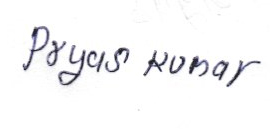 Pryas Kumar